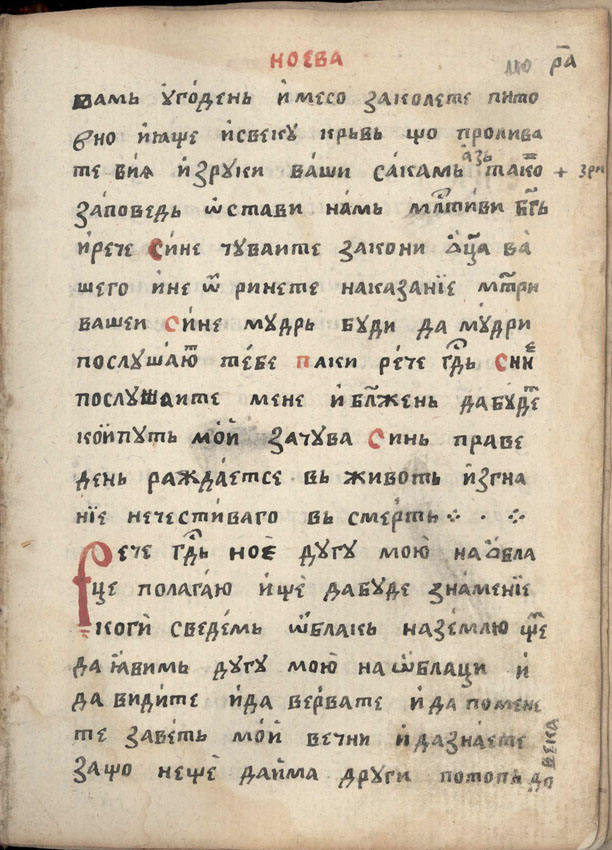 НОЕВА
р҃а
вамь ѹгодень и҆ месо заколете пито
вно и҆ ꙗще и҆свекѹ крьвь що пролива
те вия и҆зрѹки ва́ши са́камь а҆зь тако + зри
за́поведь ѡ҆стави на́мь млⷭ҇тиви бг҃ь
и҆рече Си́не чѹваите закони ѻ҆ц҃а ва
шего и҆ не ѿ ринете наказанїе мт҃ри
вашеи Си́не мѹдрь бѹди да мѹ́дри
послѹша́ютⸯ те́бе паки ре́че гдⷭ҇ь Сине
послѹшаите мене и҆ блж҃ень да бѹде
кои҆пѹть мо́й зачѹва Синь праве
день ражда́етсе вь животь и҆згна
нїе нечестиваго вь сме́рть
Рече гдⷭ҇ь ноѐ дѹгѹ мою̀ на ѻ҆бла
це полага́ю и҆щѐ да бѹде зна́менїе
коги̇̀ сведе́мь ѡ҆блакь на зе́млю ще
да ꙗ҆вимь дѹгѹ мою̀ на ѡ҆блаци и҆
да види́те и҆ да ве́рвате и҆ да помене
те за́веть мо́й вечни и҆ да зна́ете
защо нещѐ да и҆ма дрѹги потопь до
века